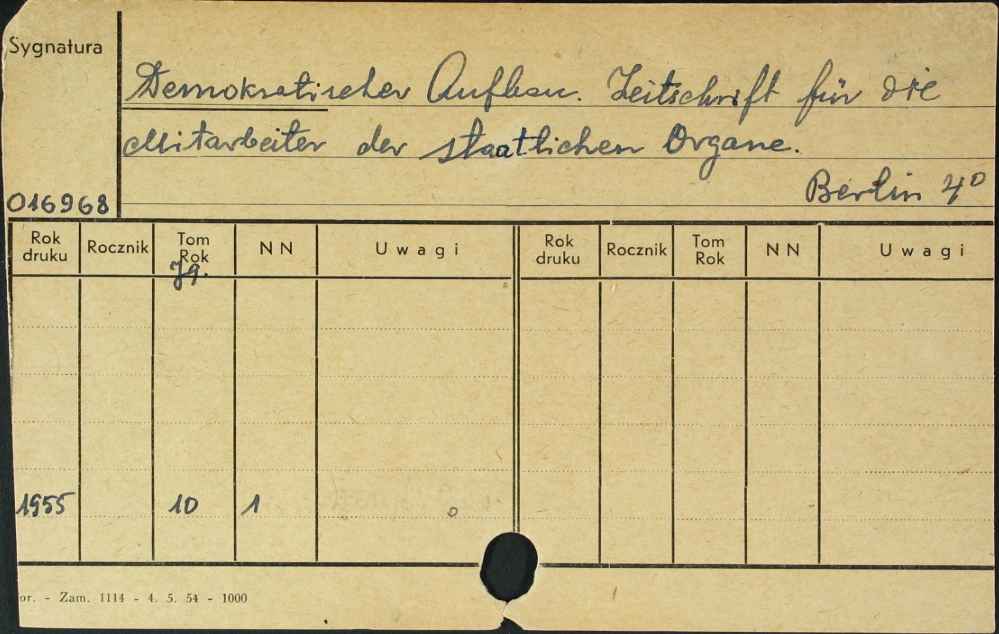 Sygnatura
Demokratischer Aufbau. Zeitschrift für die
Mitarbeiter der staatlichen Organe.
Berlin 4°
016968
Rok druku Rocznik Tom Rok NN Uwagi Rok druku Rocznik Tom Rok NN Uwagi
Jg.
1955 10 1
or. - Zam. 1114 - 4. 5. 54 - 1000